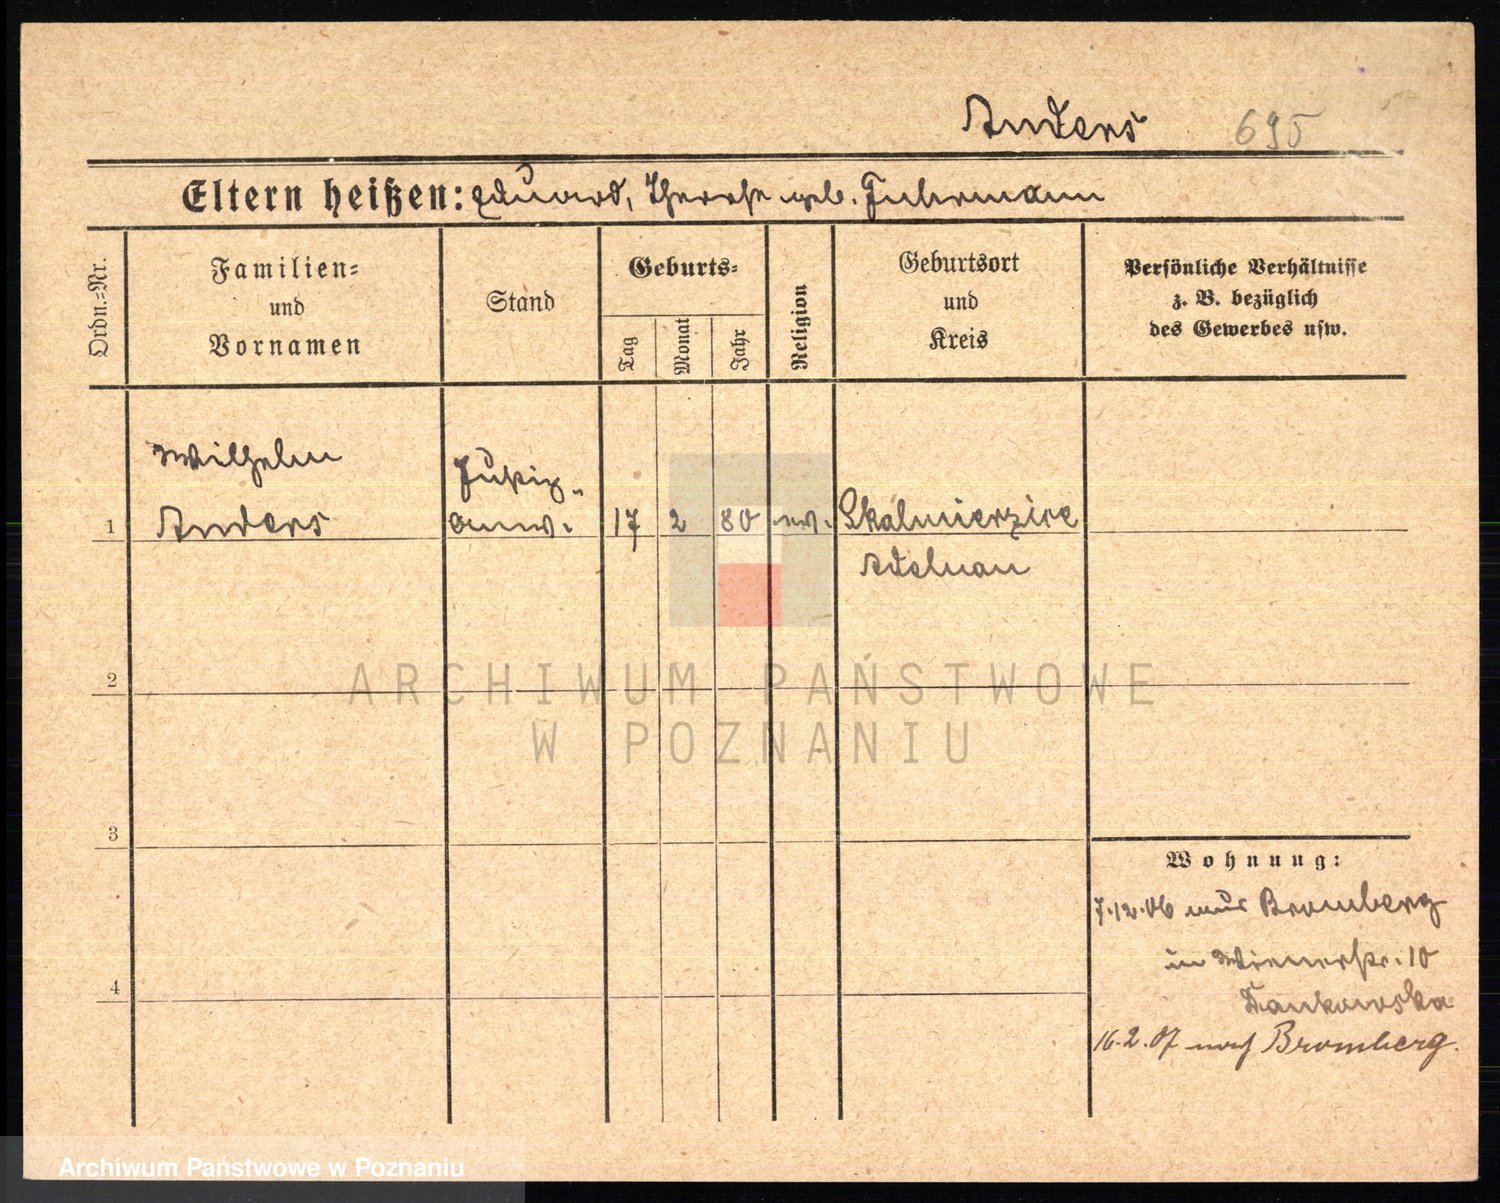 Anders 695
Eltern heißen: Eduard, Therese geb. Fuhrmann
Ordn.=Nr.
Familien=
und
Vornamen
Stand
Geburts=
Tag
Monat
Jahr
Religion
Geburtsort
und
Kreis
Persönliche Verhältnisse
z. B. bezüglich
des Gewerbes usw.
Wilhelm
Anders
Justiz-
anw.
1 17 2 80 ev. Skalmierzice
Adelnau
2
3
4
Wohnung:
7.12.06 aus Bromberg
in Wienerstr. 10
16.2.07 nach Bromberg.
ARCHIWUM PAŃSTWOWE
W POZNANIU
Archiwum Państwowe w Poznaniu